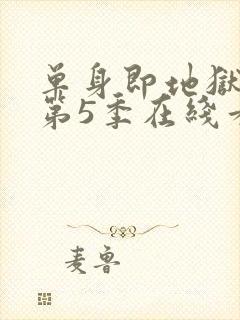 单身即地獄
第5季在綫
麦鲁